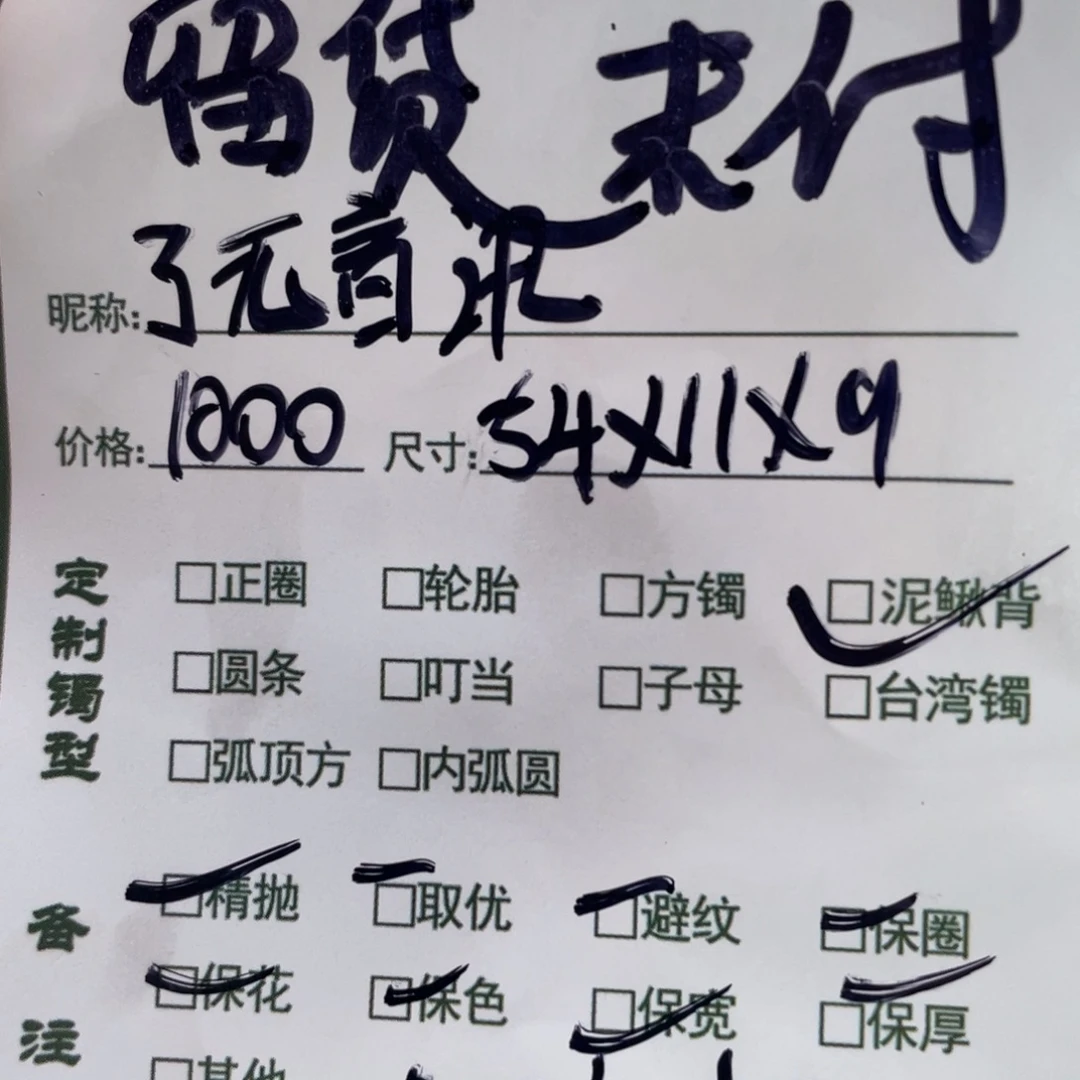 留货 未付
昵称:
价格: 1000 尺寸: 54X11X9
定制镯型
□正圈 □轮胎 □方镯 □泥鳅背
□圆条 □叮当 □子母 □台湾镯
□弧顶方 □内弧圆
备注
□精抛 □取优 □避纹 □保圈
□保花 □保色 □保宽 □保厚
□其他